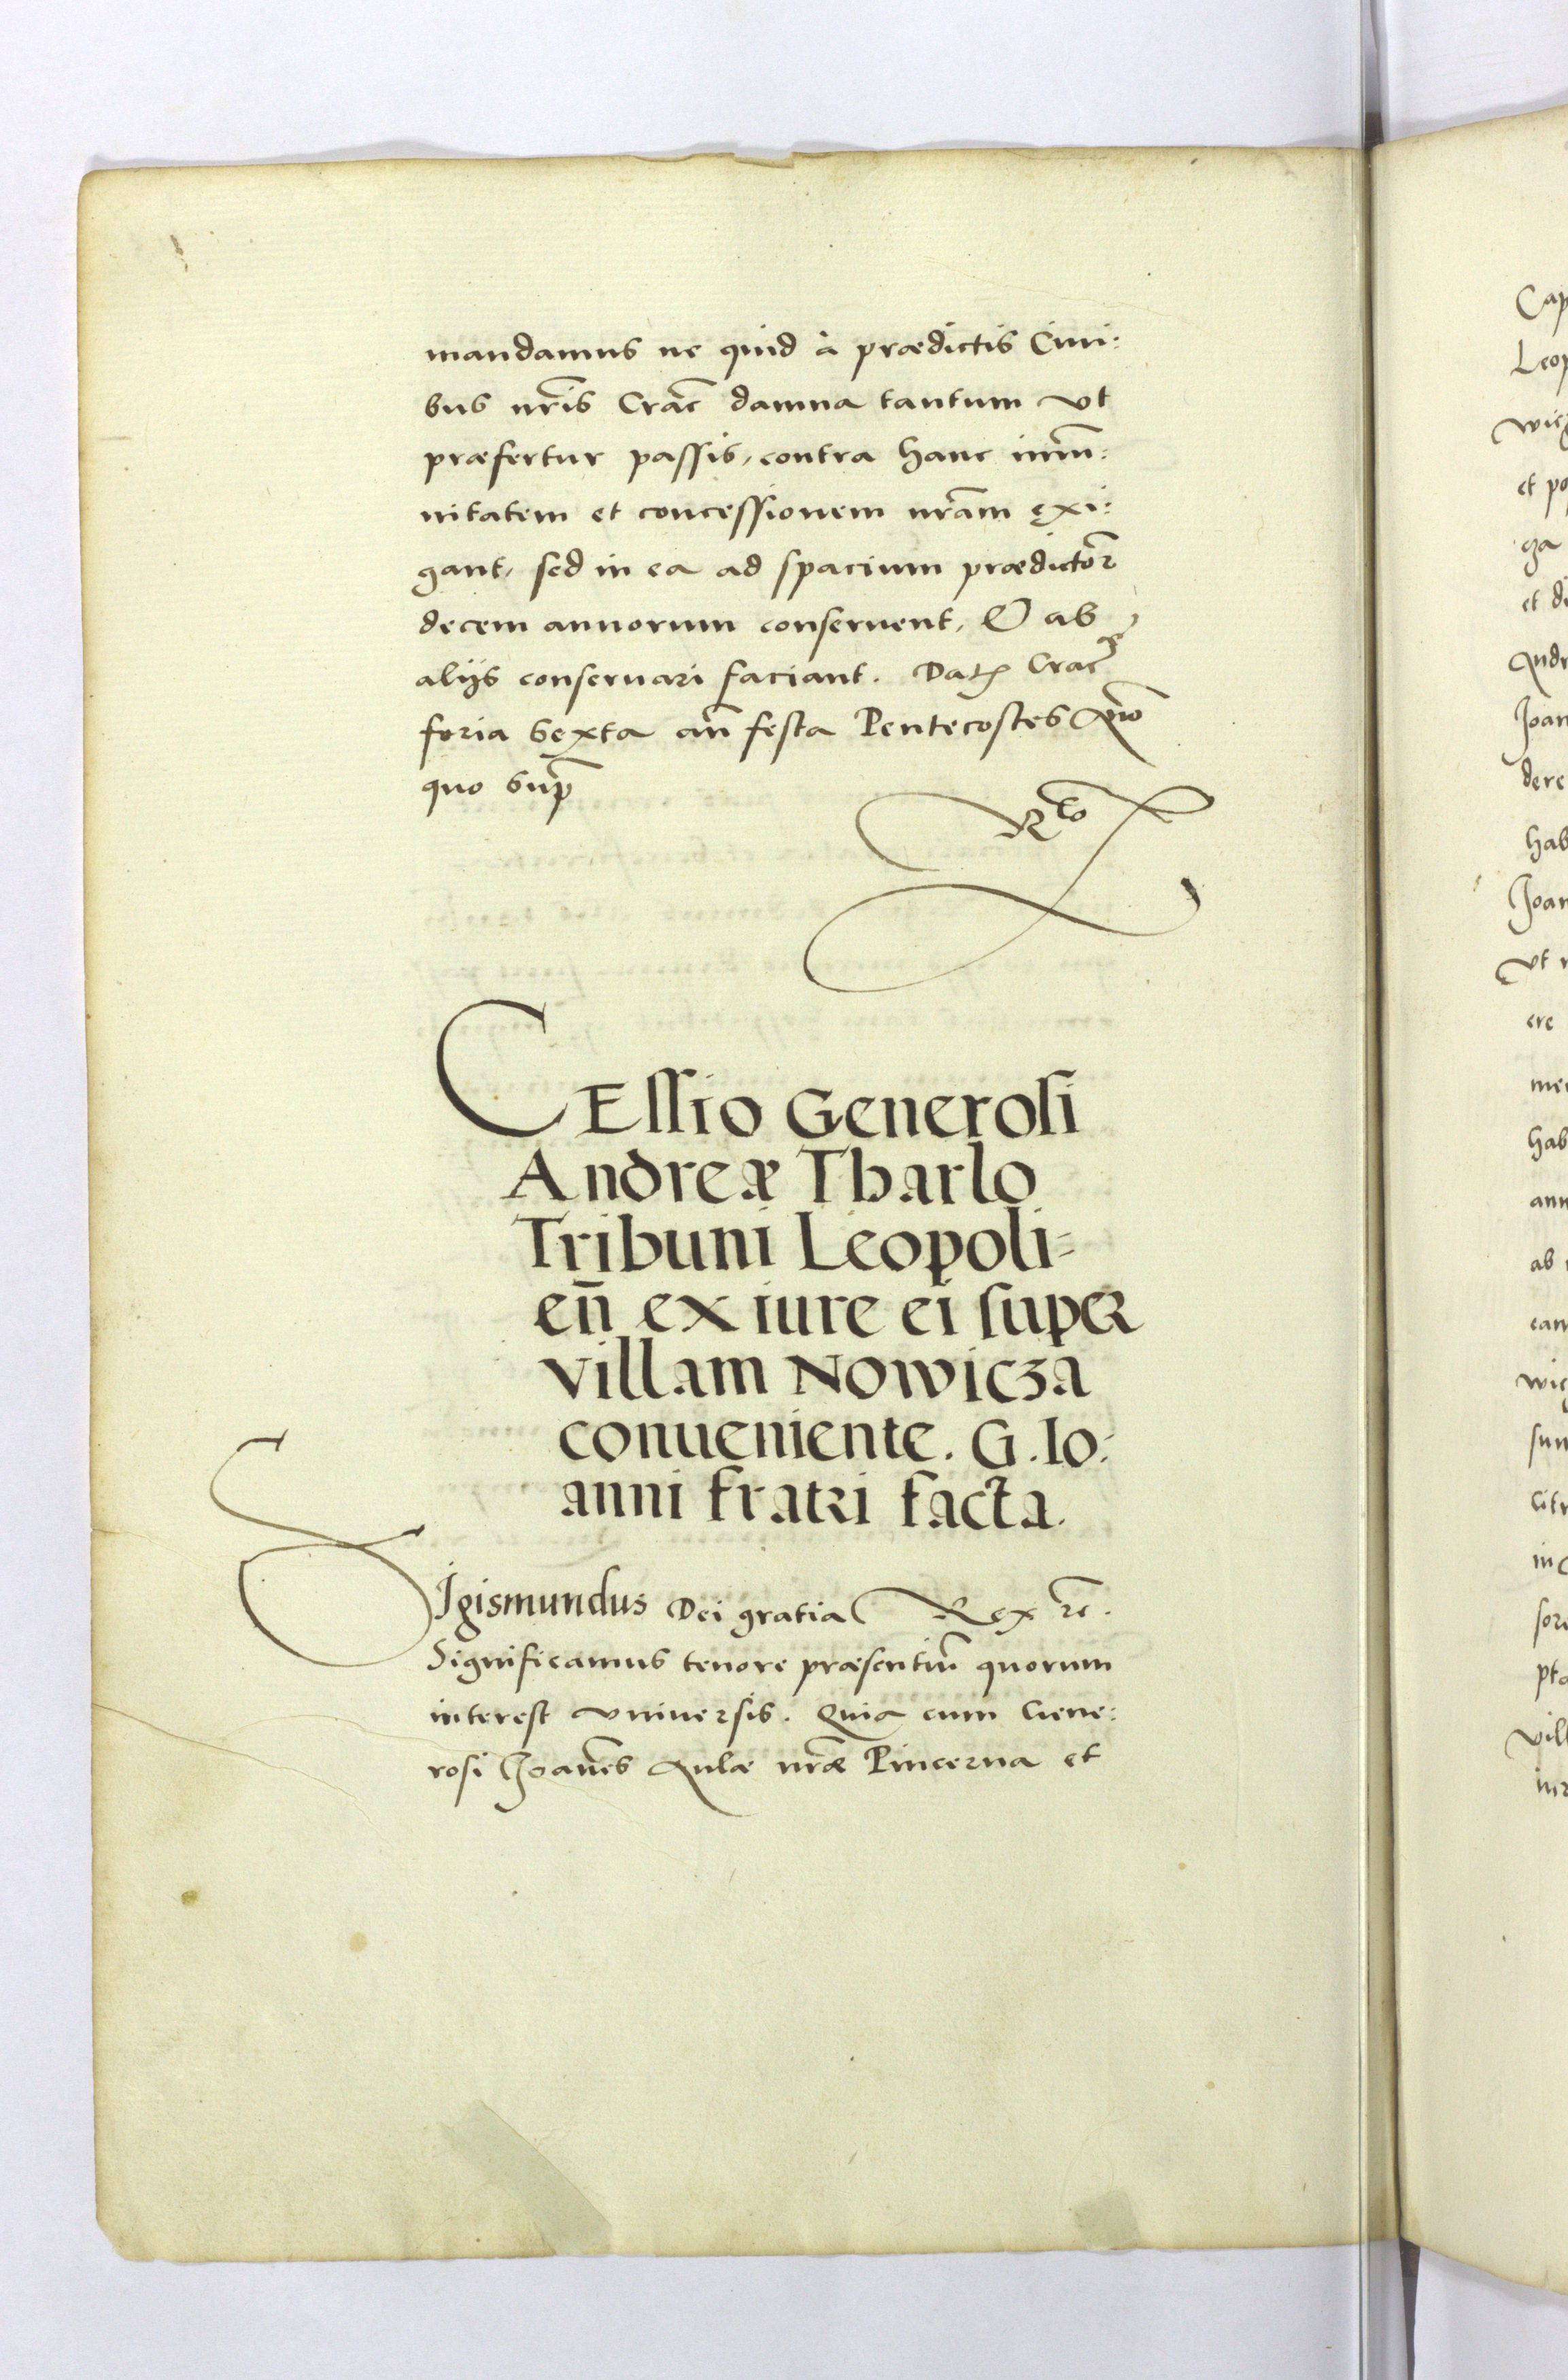 mandamus ne quid à prædictis Ciui:
bus nr̃is Crac̃ damna tantum vt
præfertur passis, contra hanc im̃u:
nitatem et concessionem nr̃am exi:
gant, sed in ea ad spacium prædictor̃
decem annorum conseruent, & ab
alijs conseruari faciant. Dat Crac̃
feria sexta añ festa Pentecostes Anõ
quo sup̃
Rtõ
CEssio Generosi
Andreæ Tharlo
Tribuni Leopoli=
eñ ex iure ei super
villam Nowicza
conueniente. G. Io:
anni fratri facta.
Sigismundus Dei gratia Rex rc̃.
Significamus tenore præsentiũ quorum
interest vniuersis. Quia cum Gene:
rosi Joañes Aulæ nr̃æ Pincerna et
Cap
Leop
et po
et di
Andr
Joan
dere
hab
Joan
vt
ere
hab
ann
ab